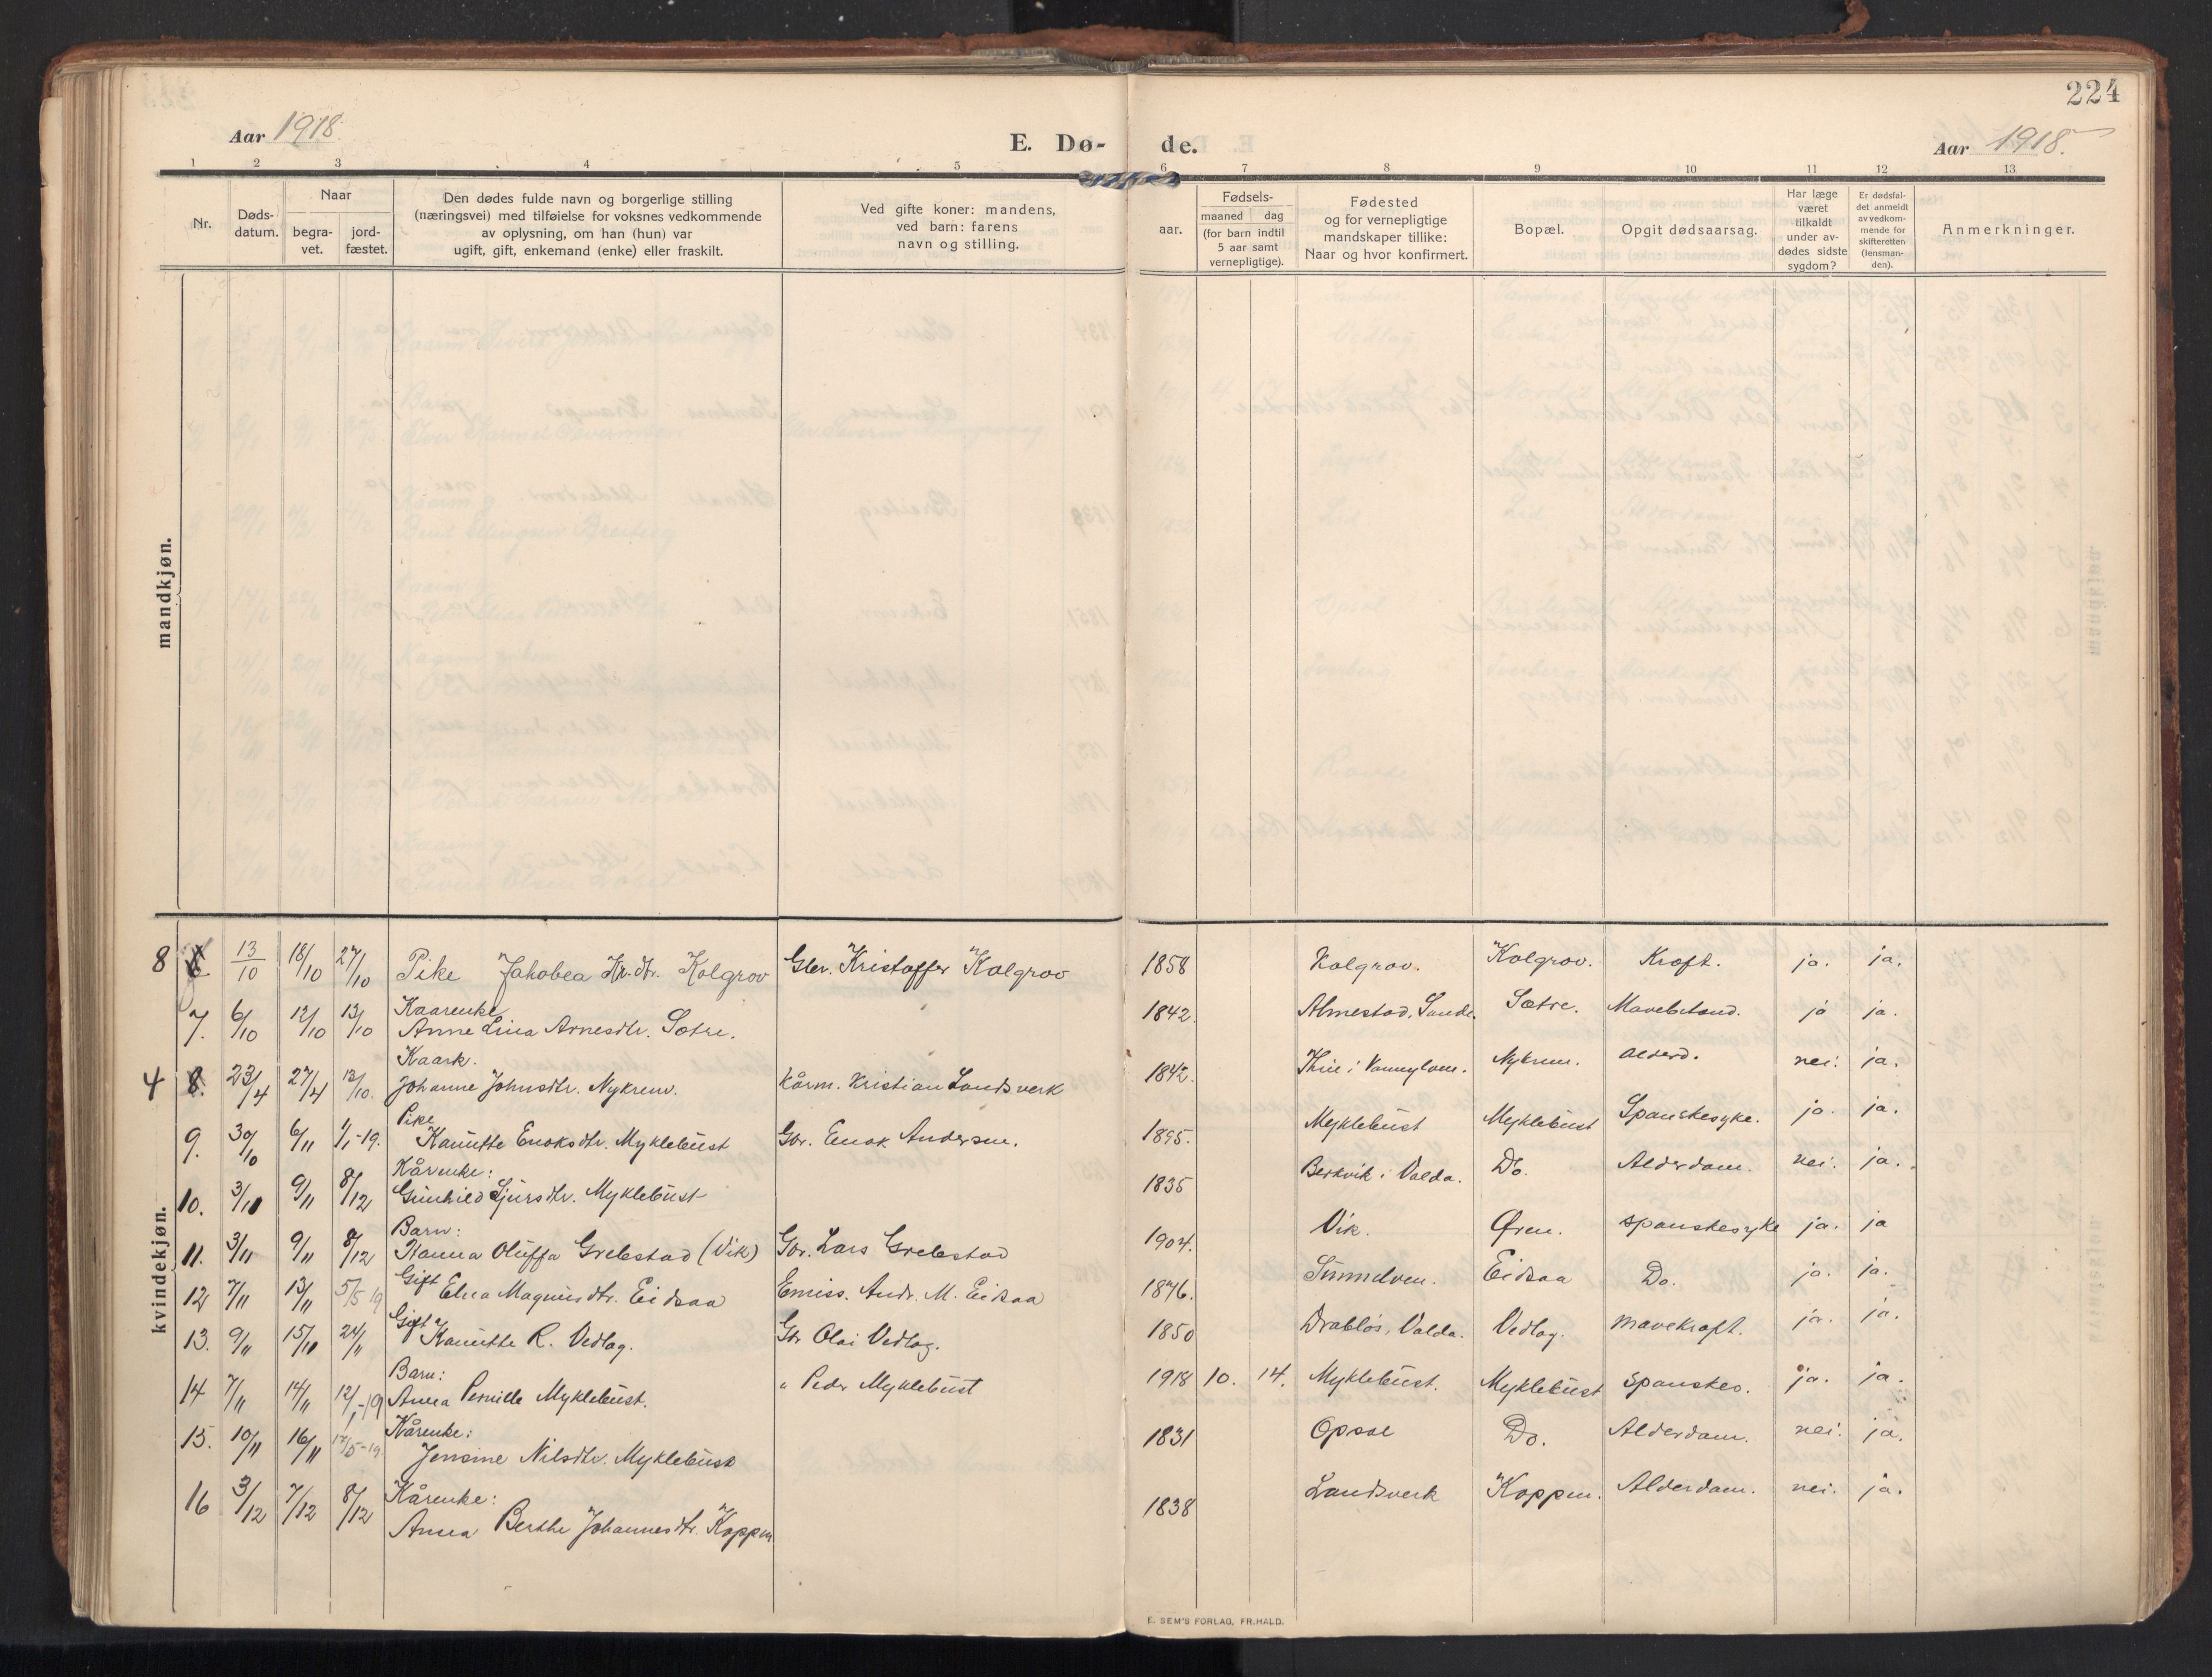 224
Aar 1918.
E. Dø- de.
Aar 1918.
1 2 3 4 5 6 7 8 9 10 11 12 13
Nr.
Døds-
datum.
Naar
begra-
vet.
jord-
fæstet.
Den dødes fulde navn og borgerlige stilling
(næringsvei) med tilføielse for voksnes vedkommende
av oplysning, om han (hun) var
ugift, gift, enkemand (enke) eller fraskilt.
Ved gifte koner: mandens,
ved barn: farens
navn og stilling.
aar.
Fødsels-
maaned dag
(for barn indtil
5 aar samt
vernepligtige).
Fødested
og for vernepligtige
mandskaper tillike:
Naar og hvor konfirmert.
Bopæl.
Opgit dødsaarsag.
Har læge
været
tilkaldt
under av-
dødes sidste
sygdom?
Er dødsfal-
det anmeldt
av vedkom-
mende for
skifteretten
(lensman-
den).
Anmerkninger.
mandkjøn.
kvindekjøn.
8 13/10 18/10 27/10 Pike Jakobea Kr.dtr. Kolgrov Gbr. Kristoffer Kolgrov 1858 Kolgrov. Kolgrov. Kræft. ja. ja.
Kaarenke
7. 6/10 12/10 13/10 Anne Lina Arnesdtr. Sætre. 1842. Almestad, Sande. Sætre. Mavebetænd. ja ja.
Kaark.
4 8. 23/4 27/4 13/10. Johanne Johnsdtr. Nykrem. Kårm. Kristian Landsverk 1842. i Vannylven. Nykrem. Alderd. nei. ja.
Pike
9. 30/10 6/11 1/1-19. Kanutte Enoksdtr. Myklebust Gbr. Enok Andersen. 1895. Myklebust Myklebust Spanskesyke. ja. ja.
Kårenke:
10. 3/11 9/11 8/12 Gunhild Sjursdtr. Myklebust 1835 Berkvik i Volda. Do. Alderdom. nei. ja.
Barn:
11. 3/11 9/11 8/12 Hanna Oluffa Grebstad (Vik) Gbr. Lars Grebstad 1904. Vik. Øren. spanskesyke ja. ja
12 7/11 13/11 5/5 19 Gift Elna Magnusdtr. Eidsaa Emiss. Andr. M. Eidsaa 1876. Sunnelven. Eidsaa Do. ja. ja.
Gift
13. 9/11 15/11 24/11 Kanutte R. Vedlog. Gbr Olai Vedlog. 1850 Drabløs, Volda. Vedlog. mavekræft. ja. ja.
Barn:
14 7/11 14/11 12/1-19 Anna Pernille Myklebust. " Peder Myklebust 1918 10. 14. Myklebust. Myklebust spanskes. ja. ja.
Kårenke:
15. 10/11 16/11 17/5-19. Jensine Nilsdtr. Myklebust 1831 Opsal Do. Alderdom. nei. ja.
Kårenke:
16 3/12 7/12 8/12 Anna Berthe Johannesdtr. Koppen 1838 Landsverk Koppen. Alderdom. nei. ja.
E. SEM'S FORLAG, FR.HALD.